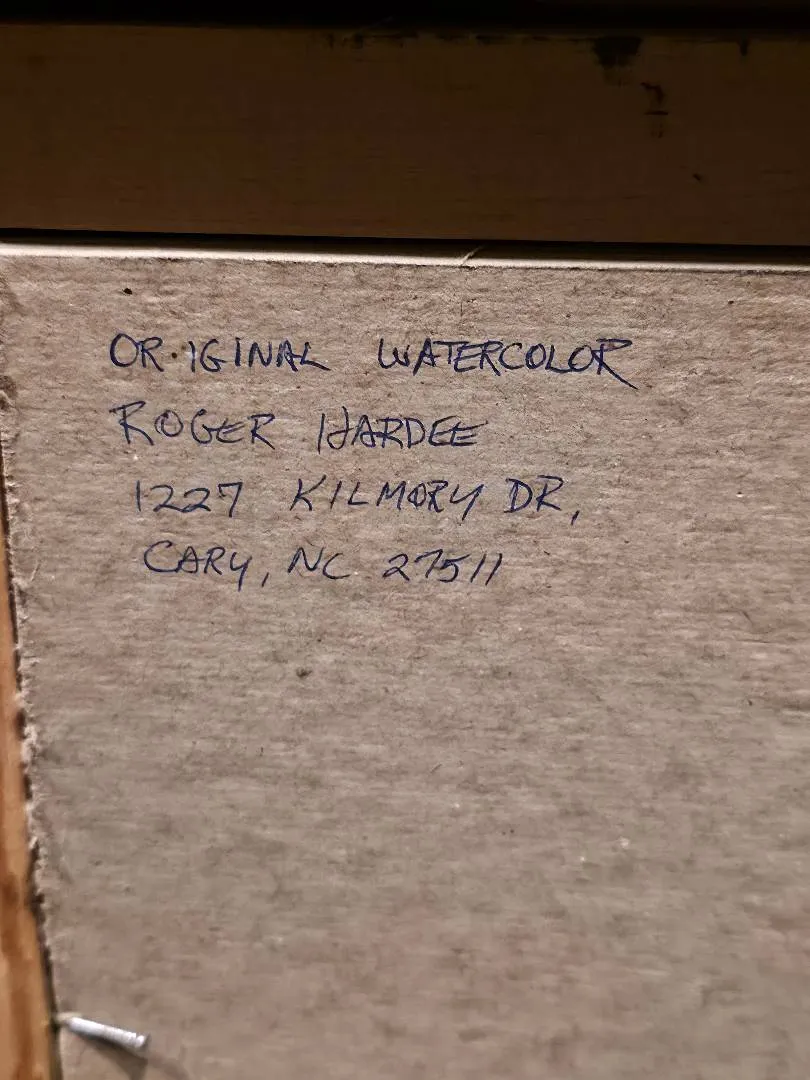 OR.IGINAL WATERCOLOR
ROGER HARDEE
1227 KILMORY DR,
CARY, NC 27511